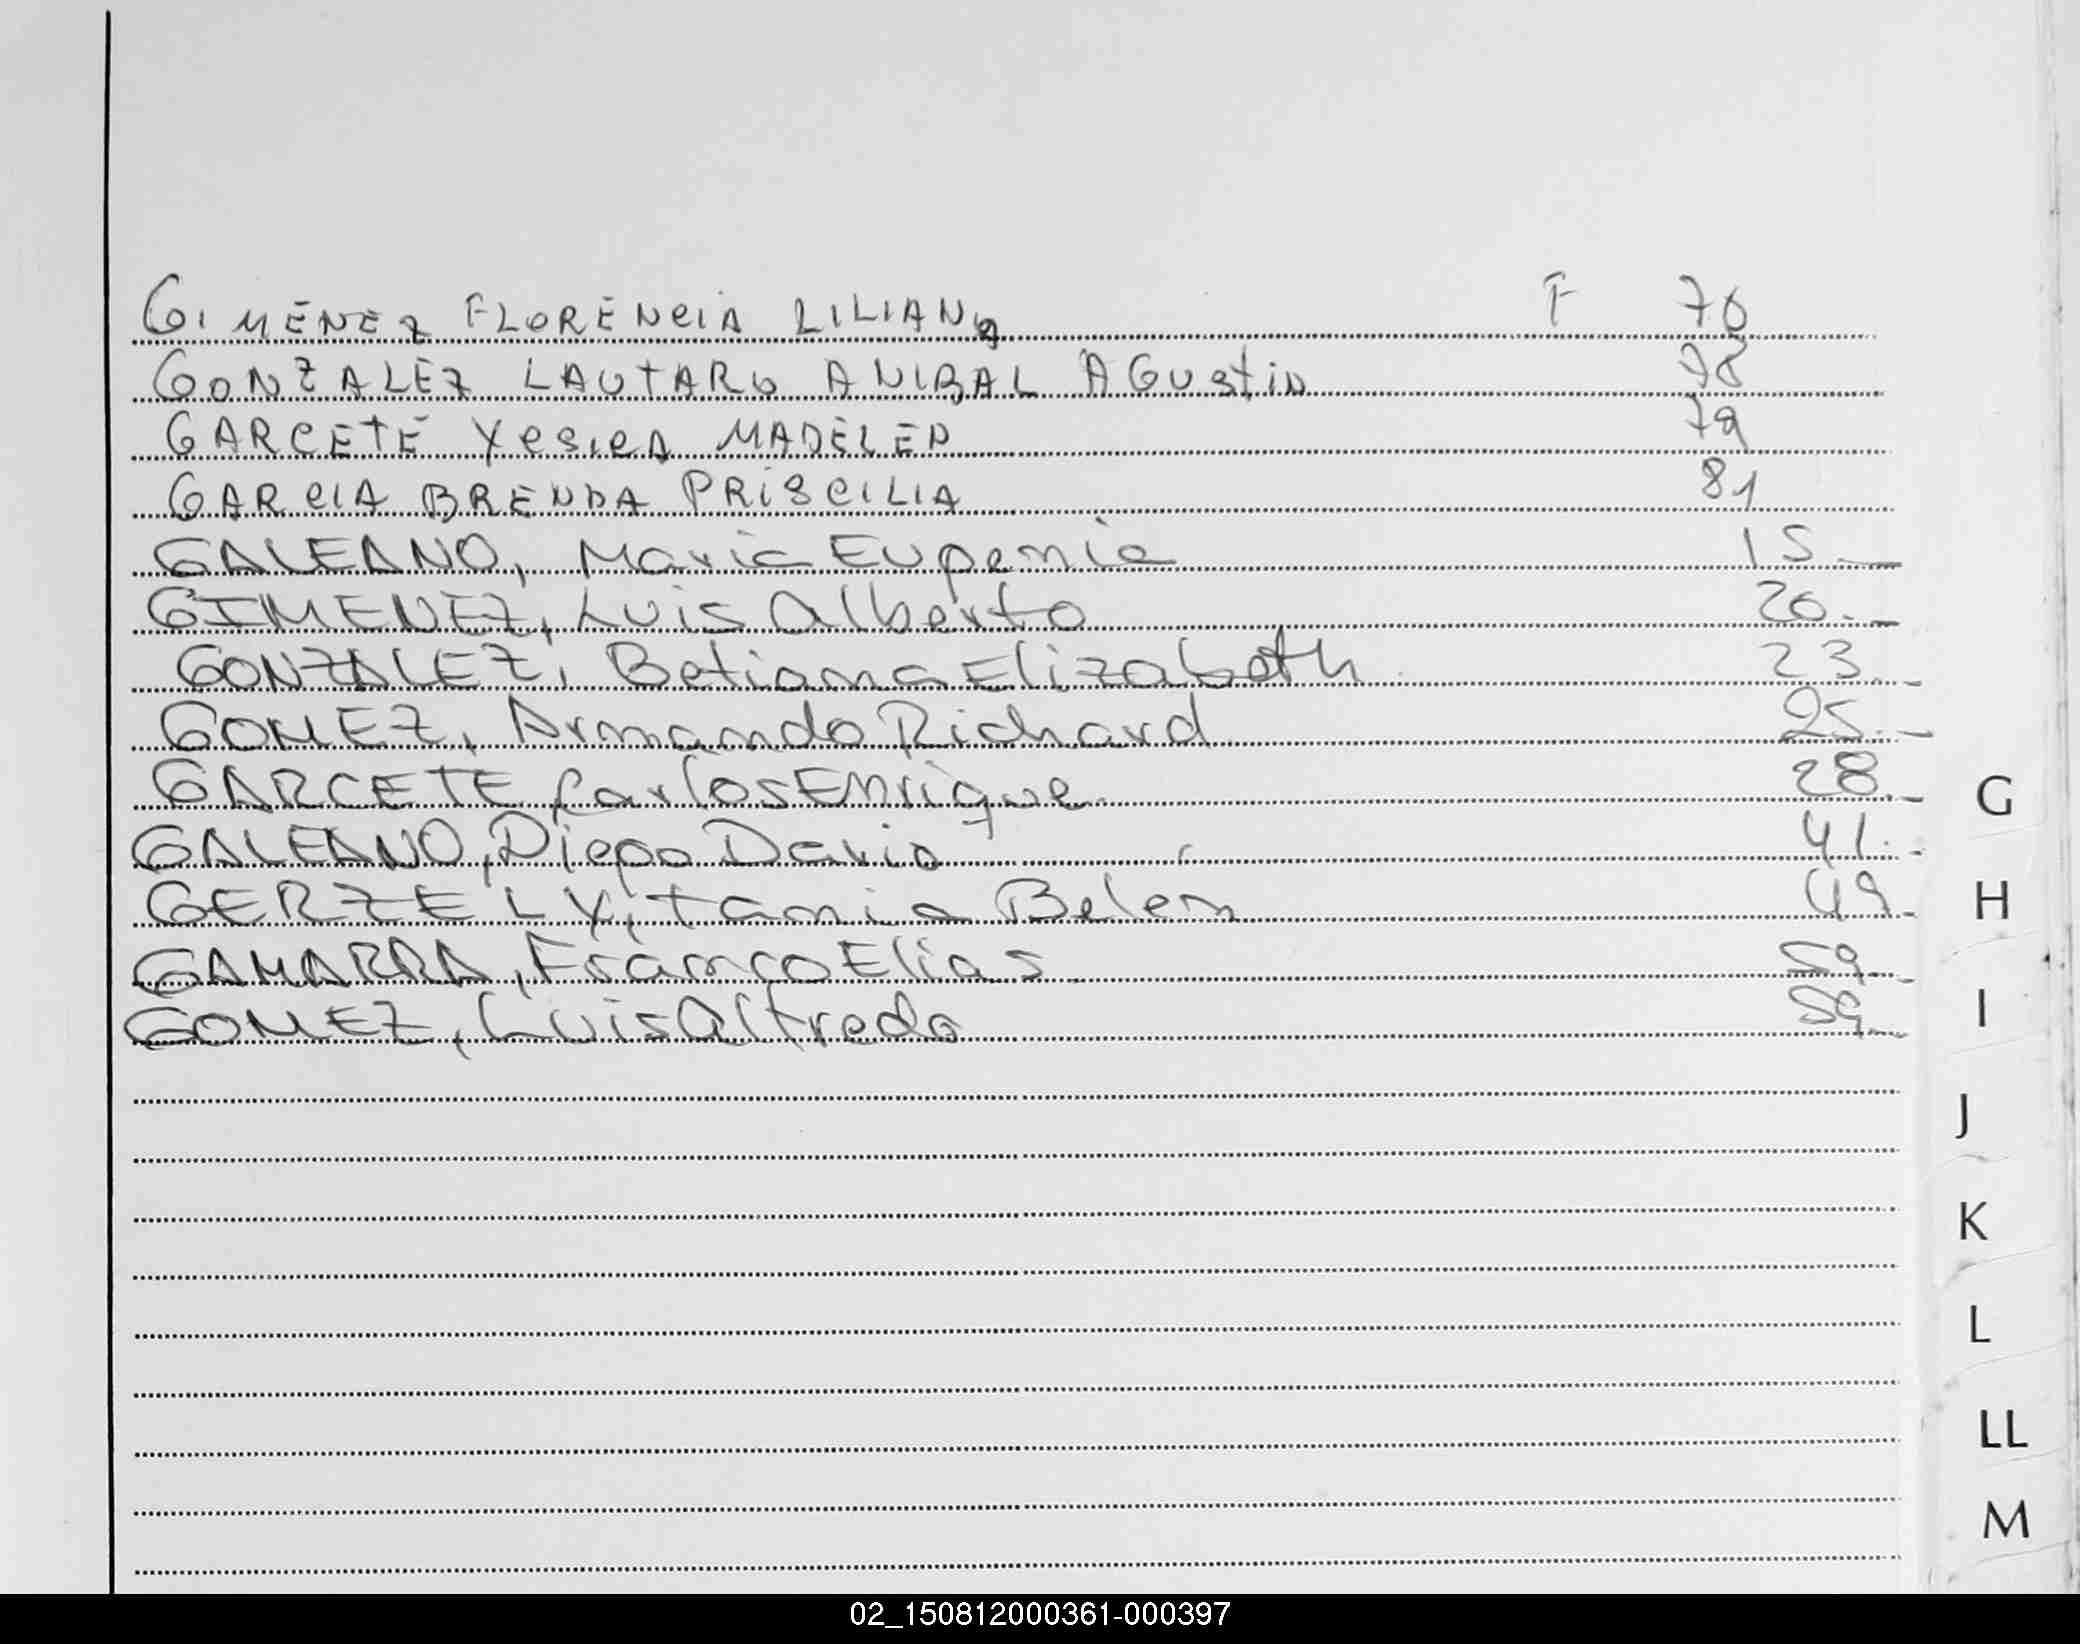 GIMENEZ FLORENCIA LILIANA F 76
GONZALEZ LAUTARO ANIBAL AGUstin 78
GARCETE YesicA MADELEN 79
GARCIA BRENDA PRISCILIA 81
GALEANO, Maria Eugenia 15.-
GIMENEZ, Luis Alberto 20.-
GONZALEZ, Betiana Elizabeth 23.-
GOMEZ, Armando Richard 25.-
GARCETE Carlos Enrique 28.-
GALEANO, Diego Dario 41.-
GERZELY, tania Belen 49.-
GAMARRA, Franco Elias 59.-
GOMEZ, Luis Alfredo 59.-
G
H
I
J
K
L
LL
M
02_150812000361-000397